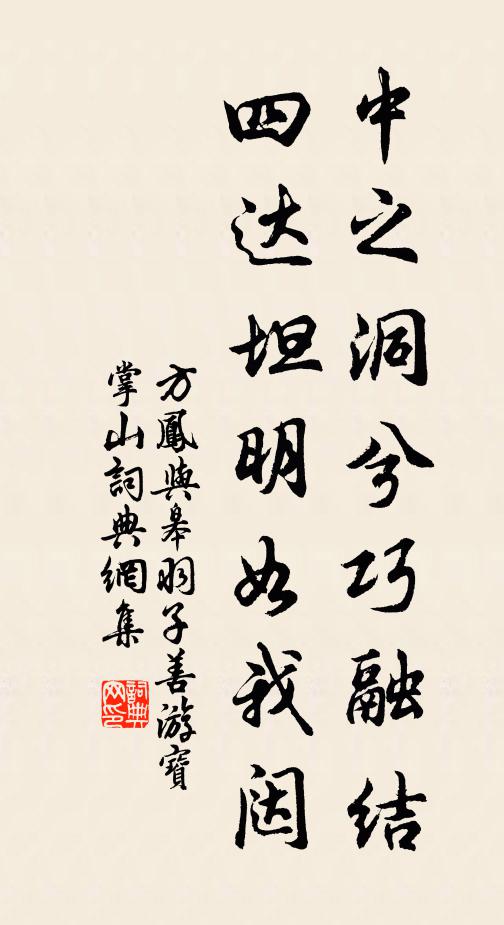 中之洞兮巧融结
四达坦明如我闼
方鳳與皋羽子善游寶
掌山詞典網集
詞典网印